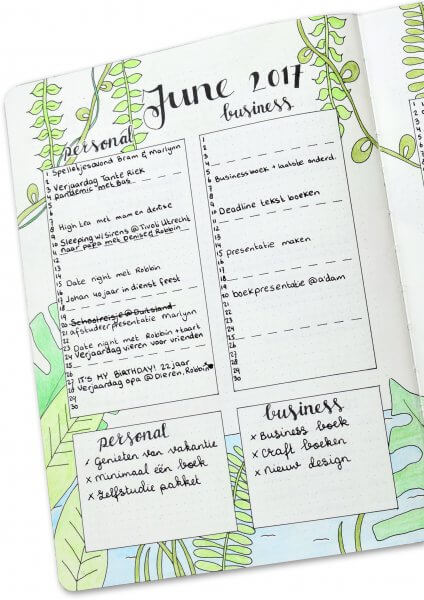 June 2017
personal
1 Spelletjesavond Bram & Marilynn
2
3 Verjaardag Tante Riek
4 Pandemic met Bas
5
6
7
8 High tea met mam en denise
9
10 Sleeping w/ Sirens @ Tivoli Utrecht
11 naar papa met Denise & Robbin
12
13
14
15 Date night met Robbin
16
17 Johan 40 jaar in dienst feest
18
19
20 Schoolreisje @ Duitsland
21 afstudeerpresentatie marilynn
22
23 Date night met Robbin + taart
24 Verjaardag vieren voor vrienden
25
26
27 IT'S MY BIRTHDAY! 22 jaar
28 Verjaardag opa @ Dieren, Robbin
29
30
business
1
2
3
4
5
6 Businessboek + laatste onderd.
7
8
9
10 Deadline tekst boeken
11
12
13
14
15 presentatie maken
16
17
18
19
20 boekpresentatie @ a'dam
21
22
23
24
25
26
27
28
29
30
personal
✓ Genieten van vakantie
x minimaal één boek
x zelfstudie pakket
business
x Business boek
x craft boeken
x nieuw design